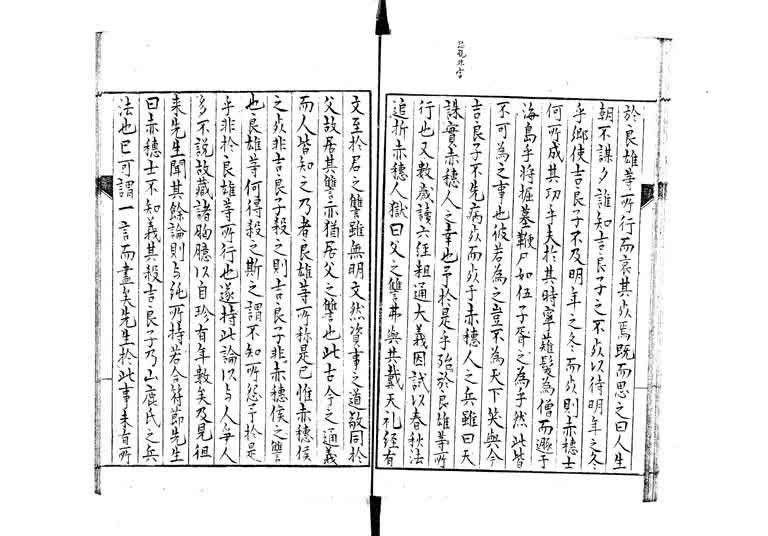 於良雄等所行而哀其死焉既而思之曰人生
朝不謀夕誰知吉良子之不死以待明年之冬
乎鄉使吉良子不及明年之冬而死則赤穗士
何所成其功乎夫於其時寧薙髮為僧而遯于
海島乎將掘墓鞭尸如伍子胥之為乎然此皆
不可為之事也彼若為之豈不為天下笑與今
吉良子不先病死而死于赤穗人之兵雖曰天
誅實赤穗人之幸也予於是乎殆於良雄等所
行也又數歲讀六經粗通大義因試以春秋法
追折赤穗人獄曰父之讐弗與共戴天礼経有
文至於君之讐雖無明文然資事之道敬同於
父故居其讐亦猶居父之讐也此古今之通義
而人皆知之乃者良雄等所稱是已惟赤穗侯
之死非吉良子殺之則吉良子非赤穗侯之讐
也良雄等何得殺之斯之謂不知所怨予於是
乎非於良雄等所行也遂持此論以与人爭人
多不說故藏諸胸臆以自珍有年數矣及見徂
来先生聞其餘論則与純所持若合符節先生
曰赤穗士不知義其殺吉良子乃山鹿氏之兵
法也已可謂一言而盡矣先生於此事未有所